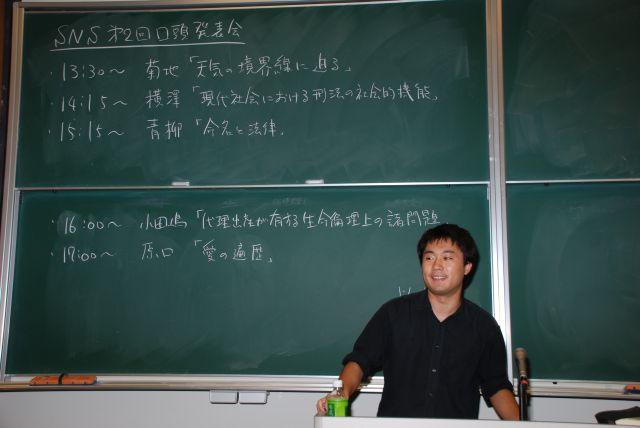 SNS 第2回口頭発表会
・13:30～ 菊地「天気の境界線に迫る」
・14:15～ 横澤「現代社会における刑法の社会的機能」
・15:15～ 青柳「命名と法律」
・16:00～ 小田嶋「代理出産が有する生命倫理上の諸問題」
・17:00～ 原口「愛の遍歴」